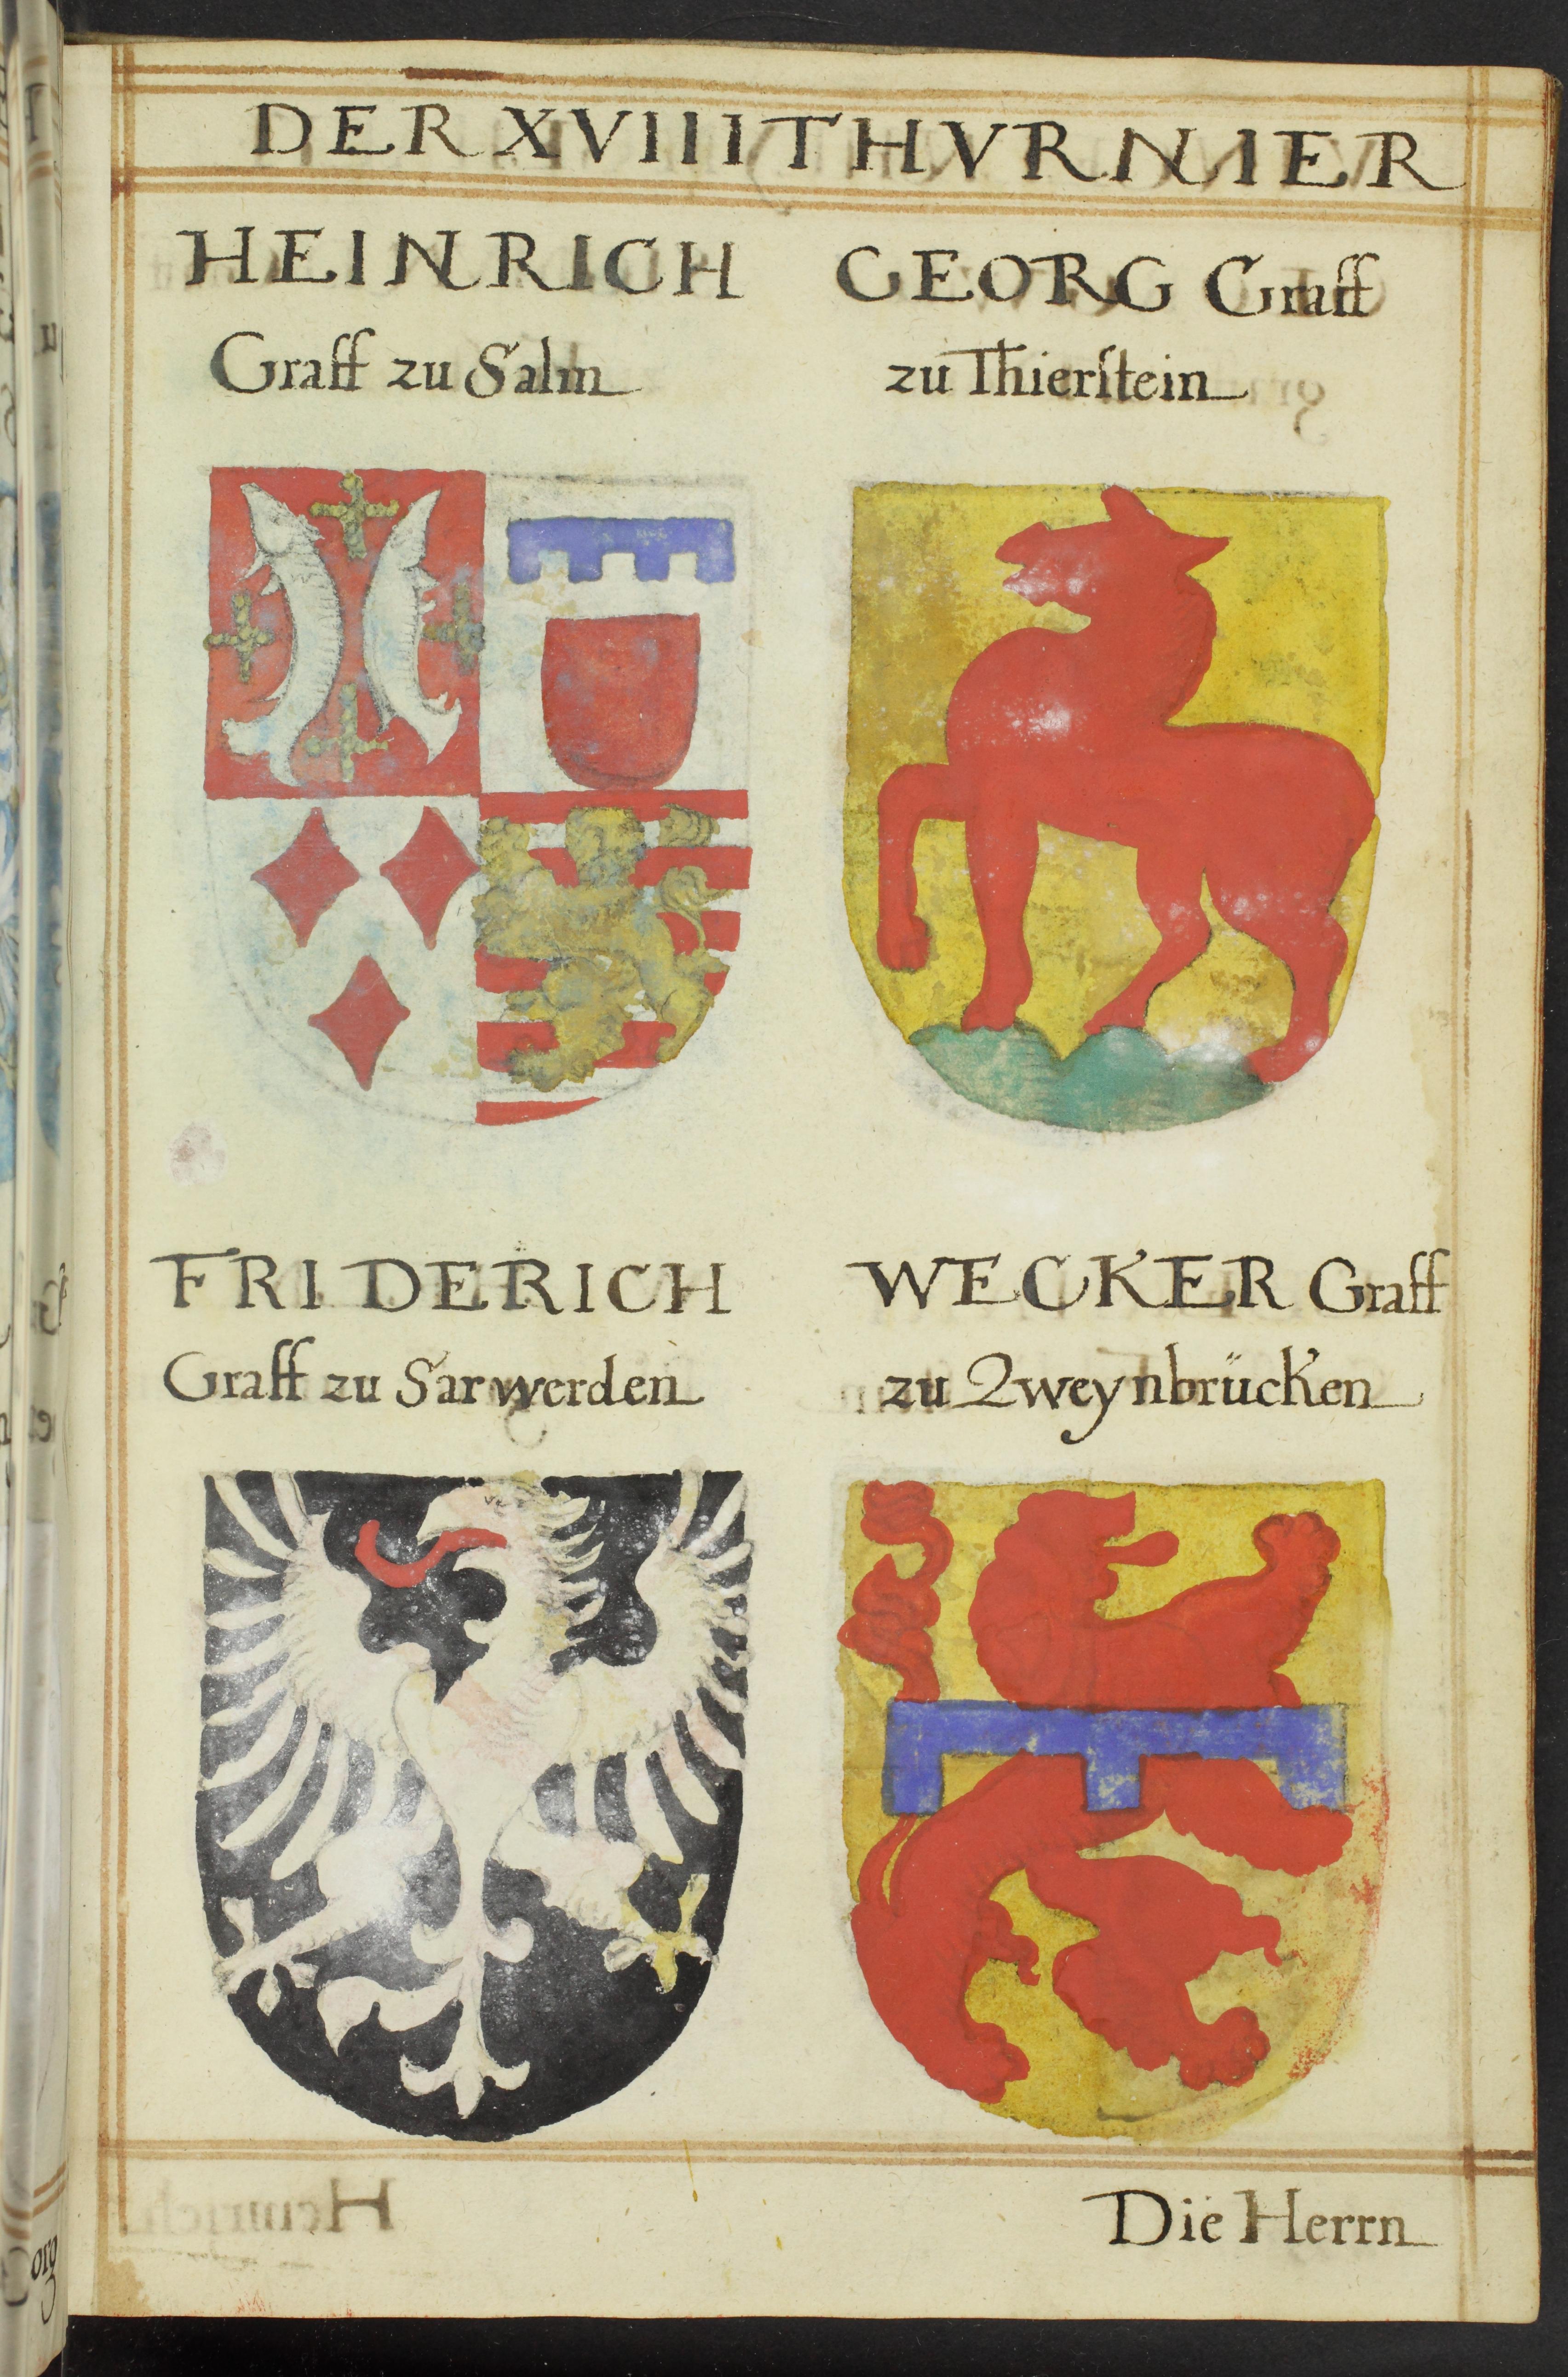 DER XVIIII THVRNIER
HEINRICH
Graff zu Salm
GEORG Graff
zu Thierſtein
FRIDERICH
Graff zu Sarwerden
WECKER Graff
zu Zweynbrücken
Die Herrn